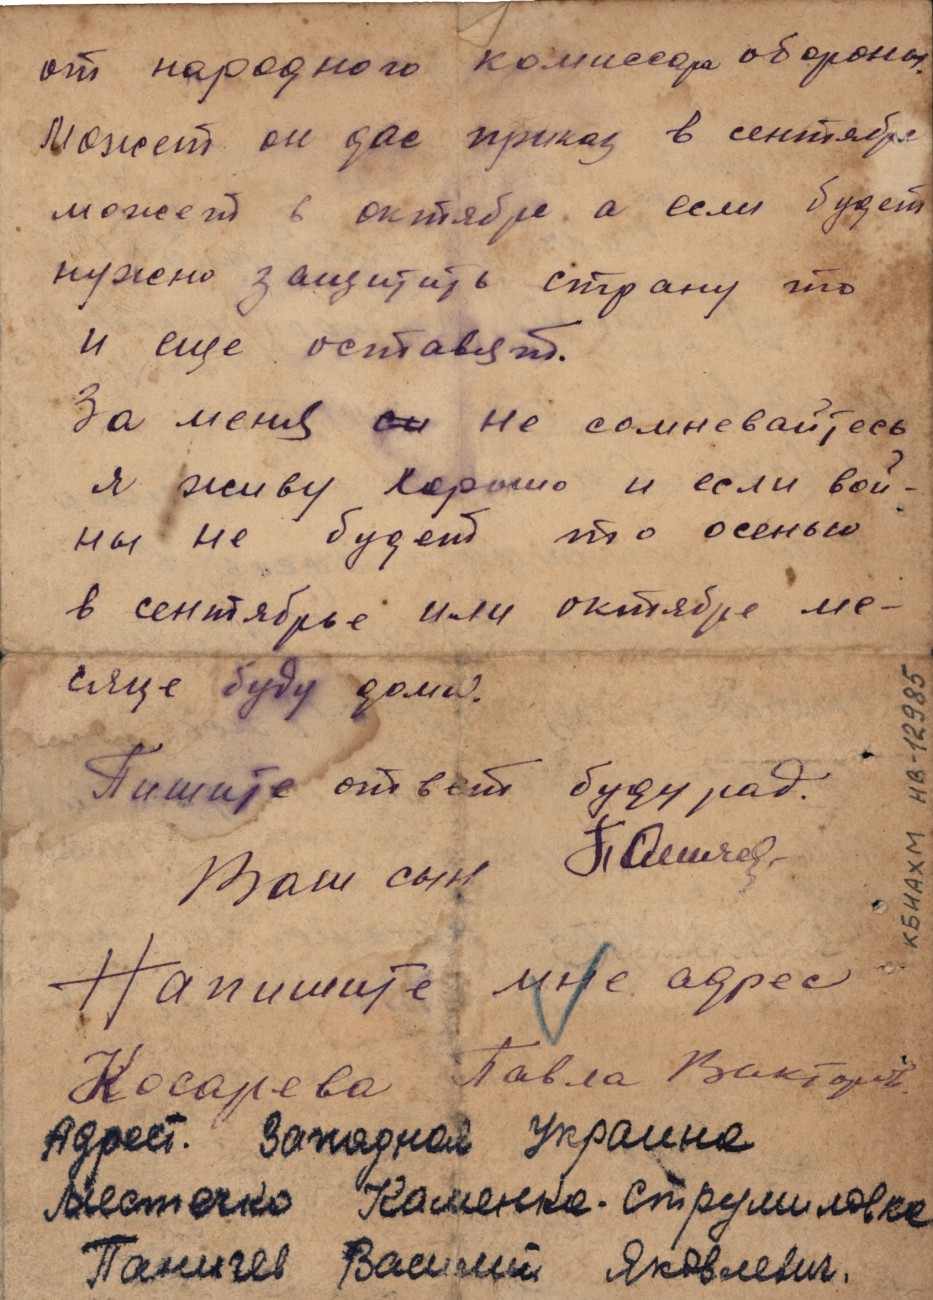 от народного комиссара обороны.
Может он дас приказ в сентябре
может в октябре а если будет
нужно защитить страну то
и еще оставят.
За меня не сомневайтесь
я живу хорошо и если вой-
ны не будет то осенью
в сентябрье или октябре ме-
сяце буду дома.
Пишите ответ буду рад.
Ваш сын
Напишите мне адрес
Косарева Павла Виктор
Адрест. Западная Украина
Местечко Каменка-Струмиловка
Паничев Василий Яковлевич.
КБИАХМ НВ-12985